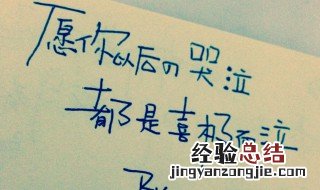 愿你以后の哭泣
都是喜极而泣
By
经验总结
jingyanzongjie.com